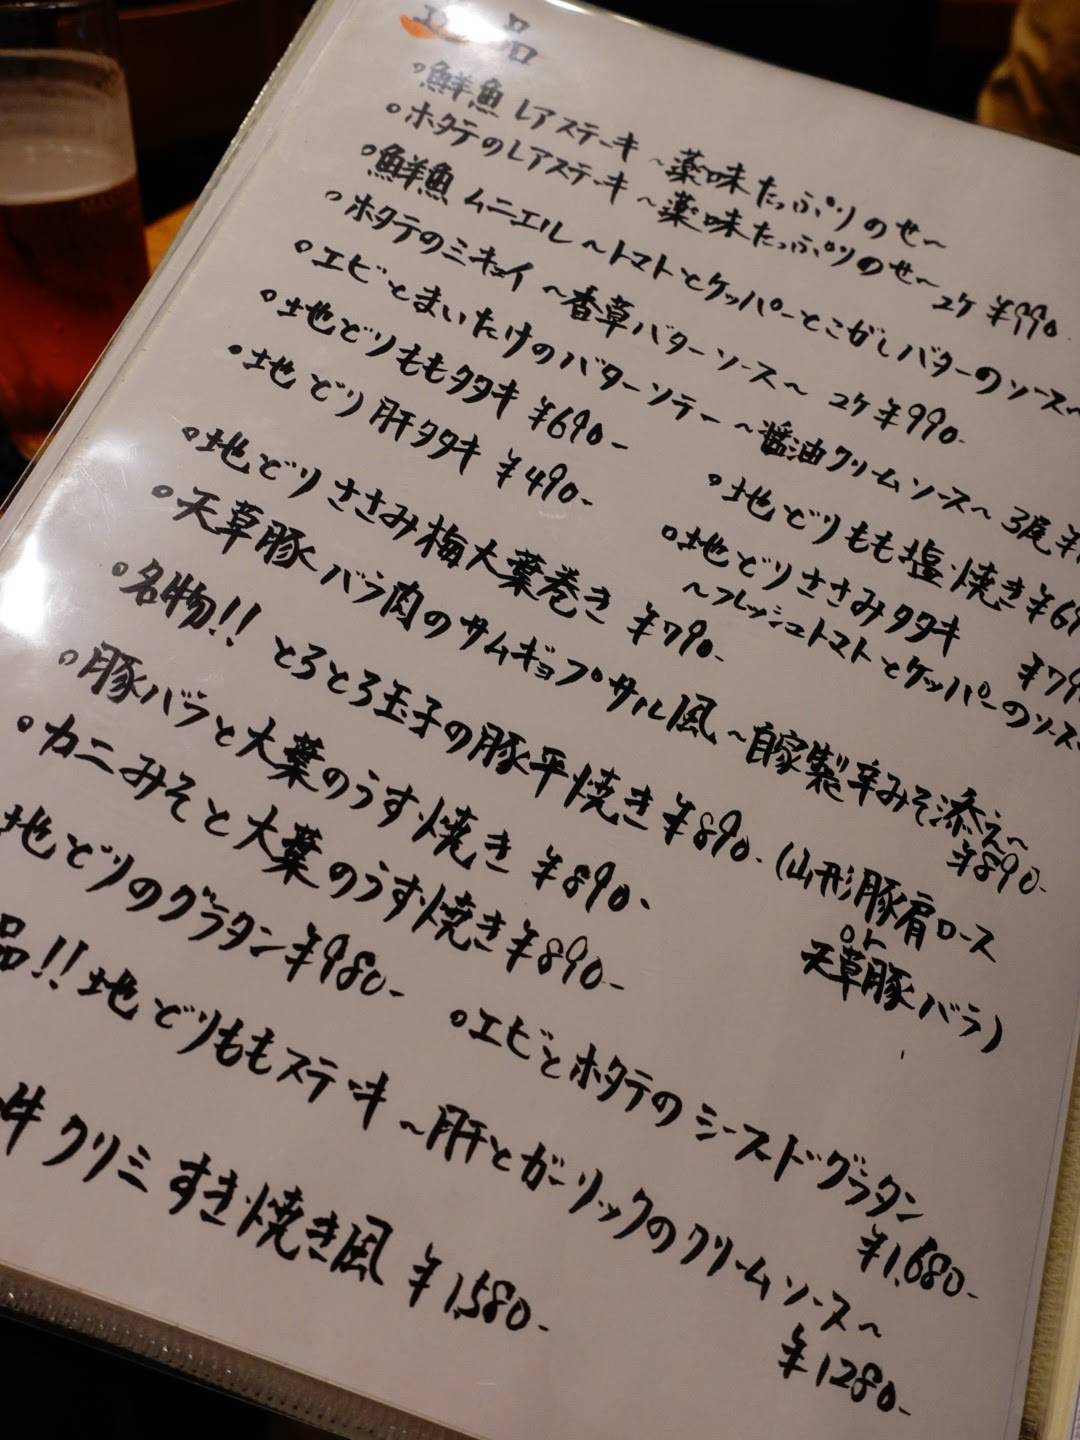 品
○鮮魚 レアステーキ ～薬味たっぷりのせ～
○ホタテのレアステーキ ～薬味たっぷりのせ～ 2ヶ ¥990.
○鮮魚 ムニエル ～トマトとケッパーとこがしバターのソース～
○ホタテのミキュイ ～香草バターソース～ 2ヶ ¥990-
○エビとまいたけのバターソテー ～醤油クリームソース～ 3尾 ¥
○地どりももタタキ ¥690-
○地どりもも塩焼き ¥69
○地どり肝タタキ ¥490-
○地どりささみタタキ ¥79
～フレッシュトマトとケッパーのソース
○地どりささみ梅大葉巻き ¥790-
○天草豚バラ肉のサムギョプサル風 ～自家製辛みそ添え～
¥890-
○名物!! とろとろ玉子の豚平焼き ¥890-(山形豚肩ロース
or
天草豚バラ)
○豚バラと大葉のうす焼き ¥890-
○カニみそと大葉のうす焼き ¥890-
地どりのグラタン ¥980-
○エビとホタテのシーフードグラタン
¥1,680-
品!! 地どりももステーキ ～肝とガーリックのクリームソース～
¥1280-
牛クリミすき焼き風 ¥1,580-